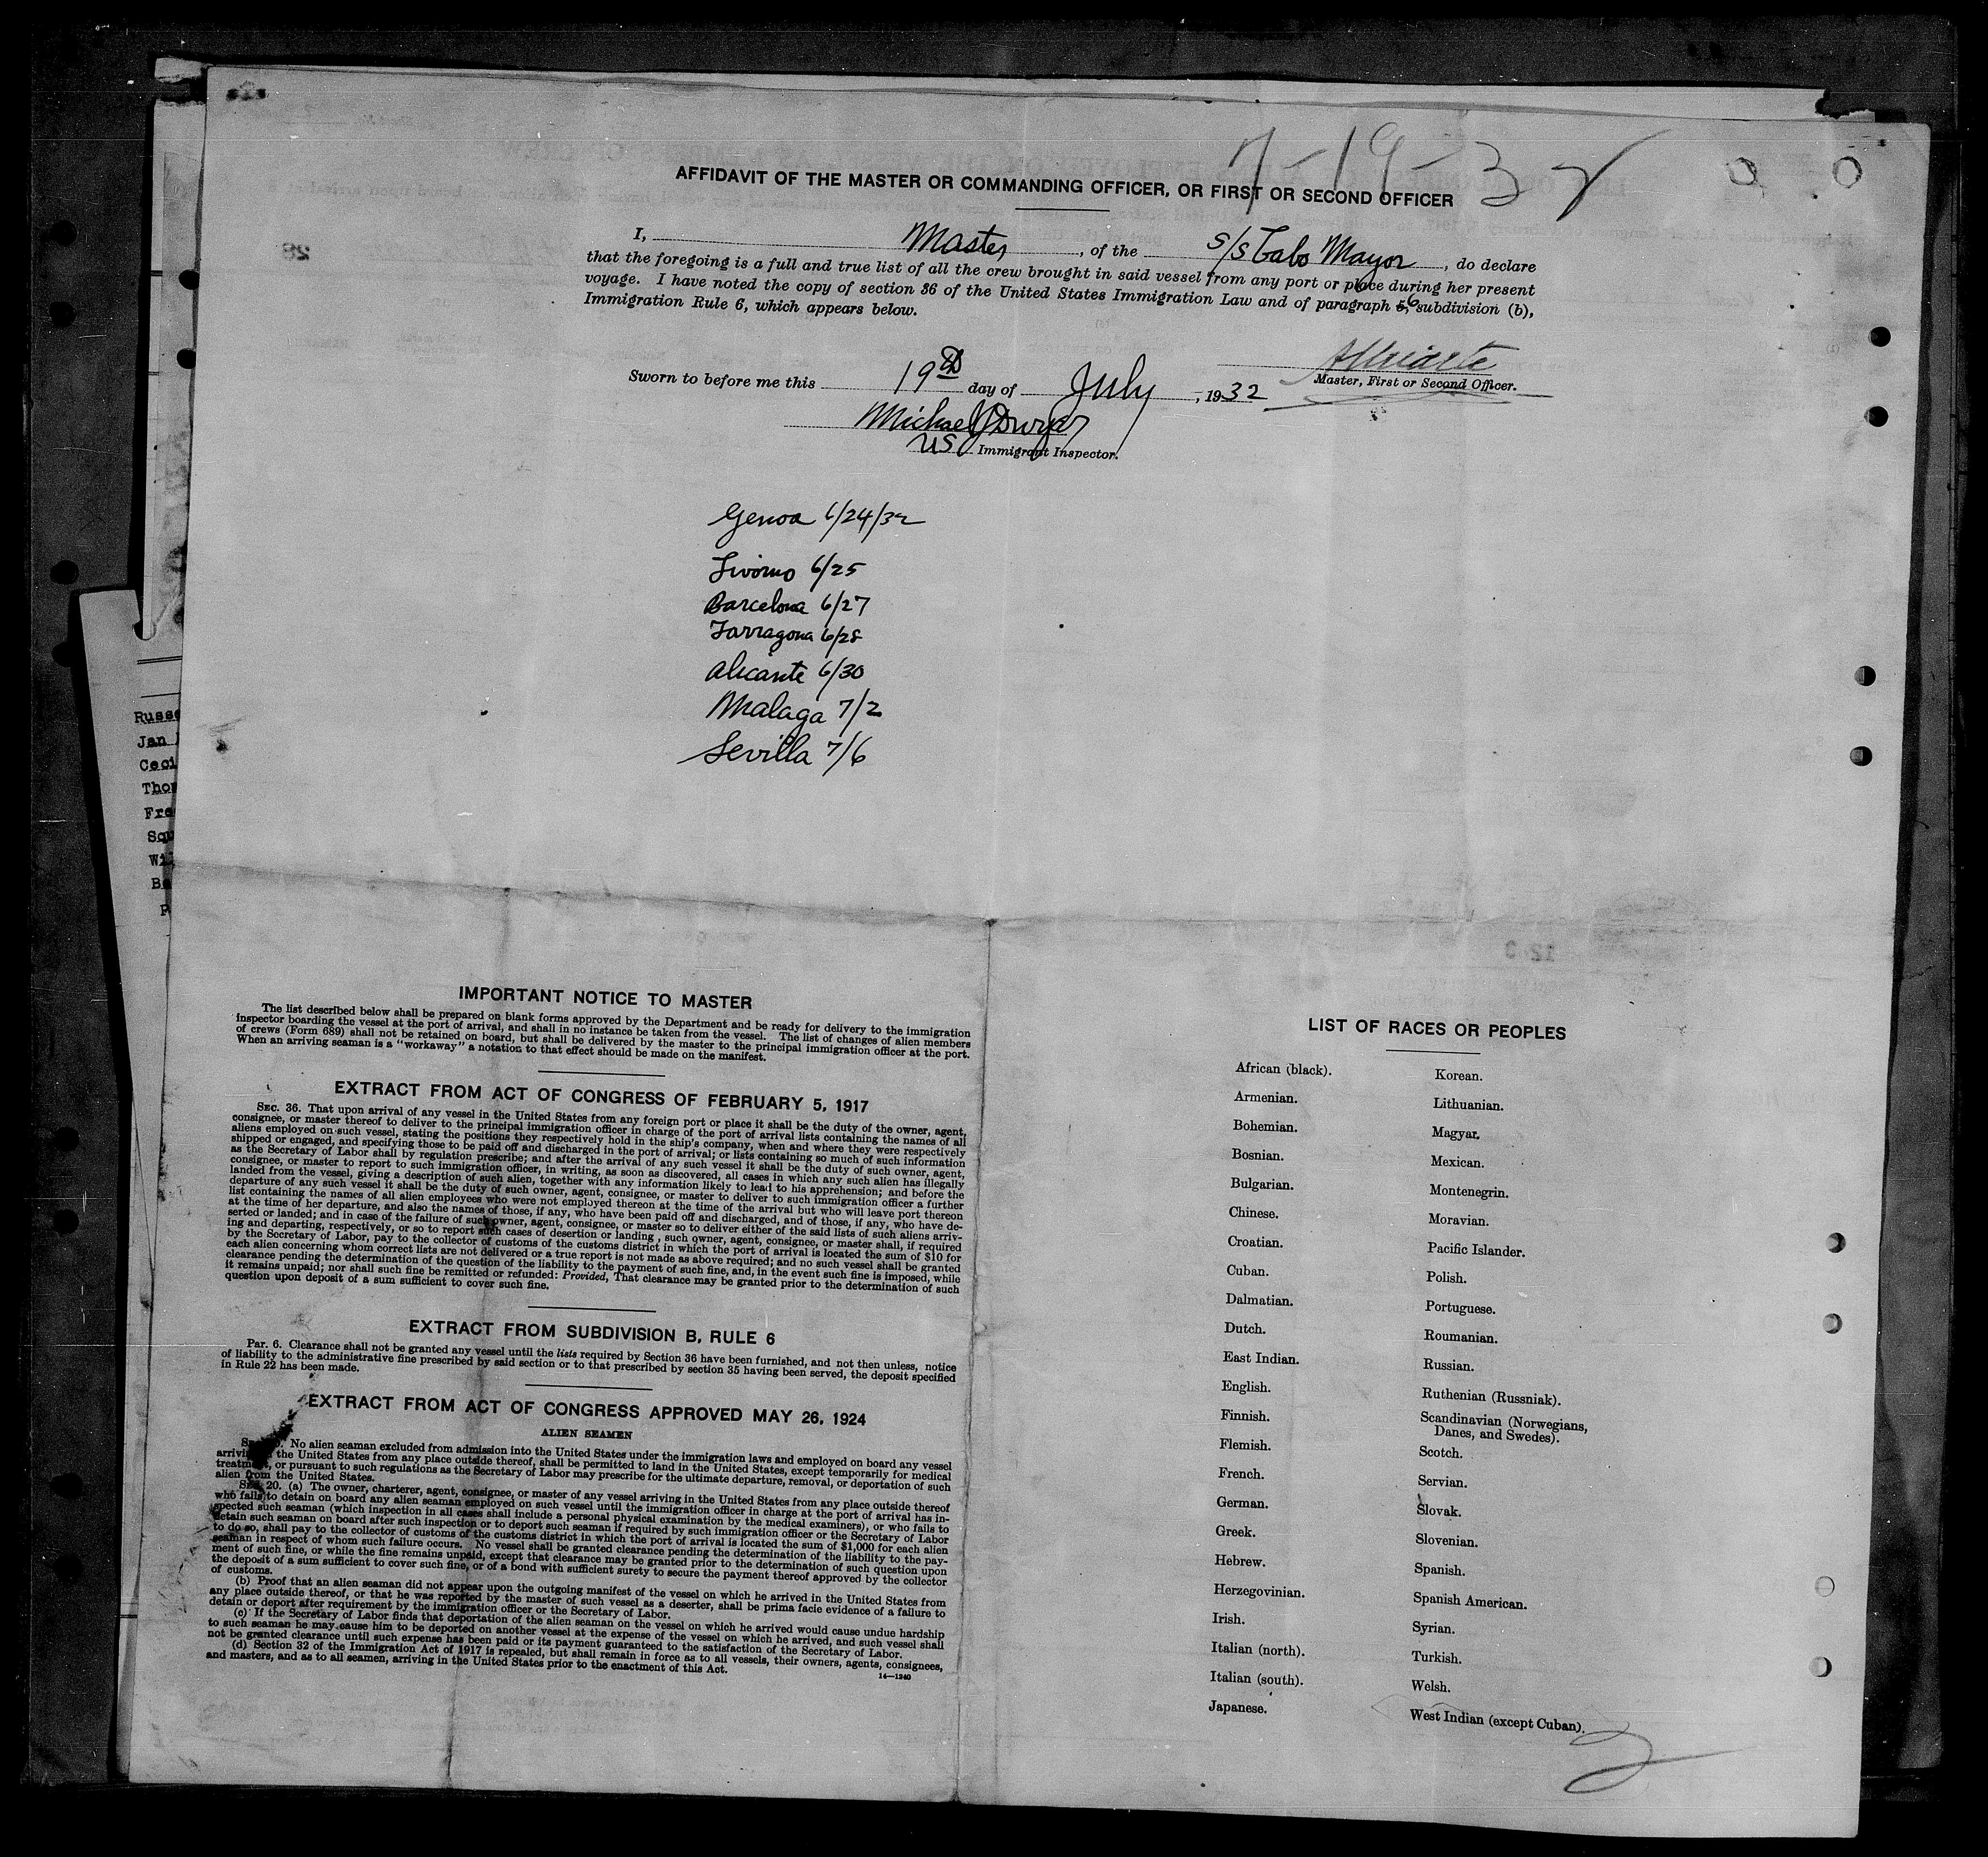 7-19-32
AFFIDAVIT OF THE MASTER OR COMMANDING OFFICER, OR FIRST OR SECOND OFFICER
I, Master, of the S/S Cabo Mayor, do declare
that the foregoing is a full and true list of all the crew brought in said vessel from any port or place during her present
voyage. I have noted the copy of section 36 of the United States Immigration Law and of paragraph 5, 6 subdivision (b),
Immigration Rule 6, which appears below.
Master, First or Second Officer.
Sworn to before me this 19th day of July, 1932
Michael J Dwyer
US Immigrant Inspector.
Genoa 6/24/32
Livorno 6/25
Barcelona 6/27
Tarragona 6/28
Alicante 6/30
Malaga 7/2
Sevilla 7/6
Jan
IMPORTANT NOTICE TO MASTER
The list described below shall be prepared on blank forms approved by the Department and be ready for delivery to the immigration
inspector boarding the vessel at the port of arrival, and shall in no instance be taken from the vessel. The list of changes of alien members
of crews (Form 689) shall not be retained on board, but shall be delivered by the master to the principal immigration officer at the port.
When an arriving seaman is a "workaway" a notation to that effect should be made on the manifest.
EXTRACT FROM ACT OF CONGRESS OF FEBRUARY 5, 1917
SEC. 36. That upon arrival of any vessel in the United States from any foreign port or place it shall be the duty of the owner, agent,
consignee, or master thereof to deliver to the principal immigration officer in charge of the port of arrival lists containing the names of all
aliens employed on such vessel, stating the positions they respectively hold in the ship's company, when and where they were respectively
shipped or engaged, and specifying those to be paid off and discharged in the port of arrival; or lists containing so much of such information
as the Secretary of Labor shall by regulation prescribe; and after the arrival of any such vessel it shall be the duty of such owner, agent,
consignee, or master to report to such immigration officer, in writing, as soon as discovered, all cases in which any such alien has illegally
landed from the vessel, giving a description of such alien, together with any information likely to lead to his apprehension; and before the
departure of any such vessel it shall be the duty of such owner, agent, consignee, or master to deliver to such immigration officer a further
list containing the names of all alien employees who were not employed thereon at the time of the arrival but who will leave port thereon
at the time of her departure, and also the names of those, if any, who have been paid off and discharged, and of those, if any, who have de-
serted or landed; and in case of the failure of such owner, agent, consignee, or master so to deliver either of the said lists of such aliens arriv-
ing and departing, respectively, or so to report such cases of desertion or landing, such owner, agent, consignee, or master shall, if required
by the Secretary of Labor, pay to the collector of customs of the customs district in which the port of arrival is located the sum of $10 for
each alien concerning whom correct lists are not delivered or a true report is not made as above required; and no such vessel shall be granted
clearance pending the determination of the question of the liability to the payment of such fine, and, in the event such fine is imposed, while
it remains unpaid; nor shall such fine be remitted or refunded: Provided, That clearance may be granted prior to the determination of such
question upon deposit of a sum sufficient to cover such fine.
EXTRACT FROM SUBDIVISION B, RULE 6
Par. 6. Clearance shall not be granted any vessel until the lists required by Section 36 have been furnished, and not then unless, notice
of liability to the administrative fine prescribed by said section or to that prescribed by section 35 having been served, the deposit specified
in Rule 22 has been made.
EXTRACT FROM ACT OF CONGRESS APPROVED MAY 26, 1924
ALIEN SEAMEN
No alien seaman excluded from admission into the United States under the immigration laws and employed on board any vessel
arriving in the United States from any place outside thereof, shall be permitted to land in the United States, except temporarily for medical
treatment, or pursuant to such regulations as the Secretary of Labor may prescribe for the ultimate departure, removal, or deportation of such
alien from the United States.
SEC. 20. (a) The owner, charterer, agent, consignee, or master of any vessel arriving in the United States from any place outside thereof
who fails to detain on board any alien seaman employed on such vessel until the immigration officer in charge at the port of arrival has in-
spected such seaman (which inspection in all cases shall include a personal physical examination by the medical examiners), or who fails to
detain such seaman on board after such inspection or to deport such seaman if required by such immigration officer or the Secretary of Labor
to do so, shall pay to the collector of customs of the customs district in which the port of arrival is located the sum of $1,000 for each alien
seaman in respect of whom such failure occurs. No vessel shall be granted clearance pending the determination of the liability to the pay-
ment of such fine, or while the fine remains unpaid, except that clearance may be granted prior to the determination of such question upon
the deposit of a sum sufficient to cover such fine, or of a bond with sufficient surety to secure the payment thereof approved by the collector
of customs.
(b) Proof that an alien seaman did not appear upon the outgoing manifest of the vessel on which he arrived in the United States from
any place outside thereof, or that he was reported by the master of such vessel as a deserter, shall be prima facie evidence of a failure to
detain or deport after requirement by the immigration officer or the Secretary of Labor.
(c) If the Secretary of Labor finds that deportation of the alien seaman on the vessel on which he arrived would cause undue hardship
to such seaman he may cause him to be deported on another vessel at the expense of the vessel on which he arrived, and such vessel shall
not be granted clearance until such expense has been paid or its payment guaranteed to the satisfaction of the Secretary of Labor.
(d) Section 32 of the Immigration Act of 1917 is repealed, but shall remain in force as to all vessels, their owners, agents, consignees,
and masters, and as to all seamen, arriving in the United States prior to the enactment of this Act.
14—1240
LIST OF RACES OR PEOPLES
African (black).
Armenian.
Bohemian.
Bosnian.
Bulgarian.
Chinese.
Croatian.
Cuban.
Dalmatian.
Dutch.
East Indian.
English.
Finnish.
Flemish.
French.
German.
Greek.
Hebrew.
Herzegovinian.
Irish.
Italian (north).
Italian (south).
Japanese.
Korean.
Lithuanian.
Magyar.
Mexican.
Montenegrin.
Moravian.
Pacific Islander.
Polish.
Portuguese.
Roumanian.
Russian.
Ruthenian (Russniak).
Scandinavian (Norwegians,
Danes, and Swedes).
Scotch.
Servian.
Slovak.
Slovenian.
Spanish.
Spanish American.
Syrian.
Turkish.
Welsh.
West Indian (except Cuban).